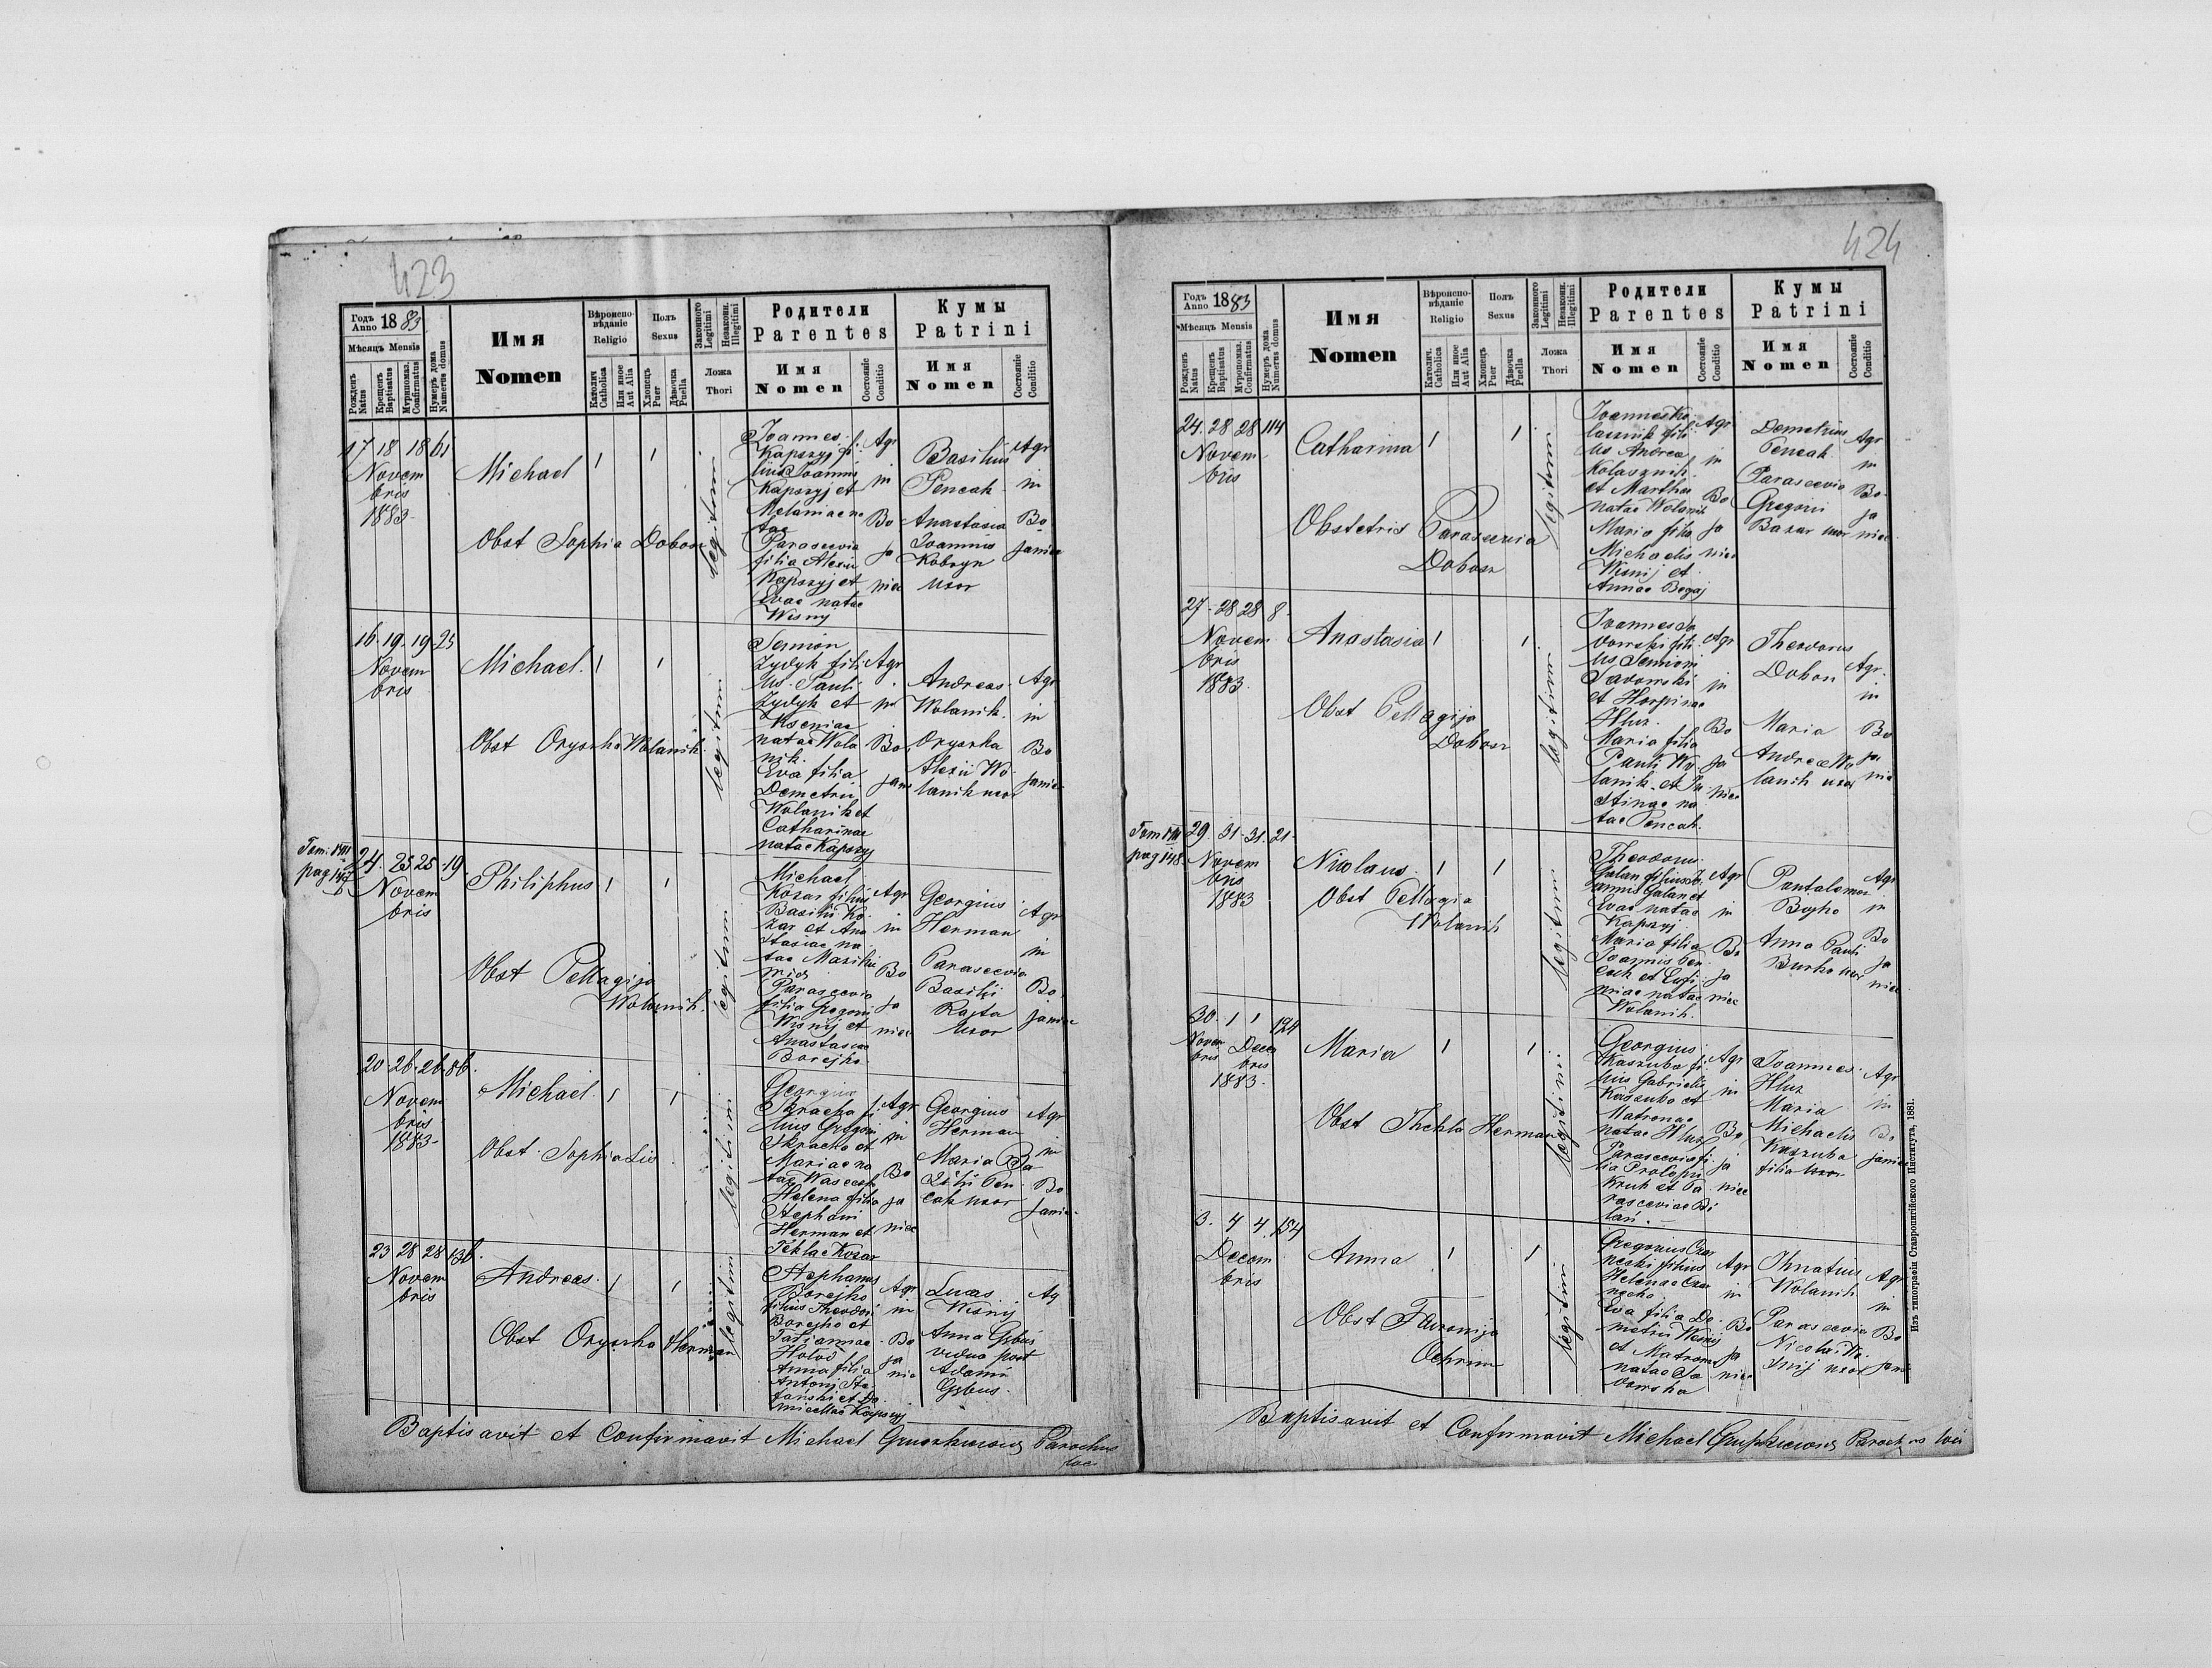 423
Годъ Anno 1883
Мѣсяцъ Mensis
Рожденъ Natus
Крещенъ Baptisatus
Муропомаз. Confirmatus
Нумеръ дома Numerus domus
Имя
Nomen
Вѣроиспо-
вѣданіе
Religio
Католич Catholica
Или иное Aut Alia
Полъ
Sexus
Хлопецъ Puer
Дѣвочка Puella
Законного Legitimi
Незаконн. Illegitimi
Ложа
Thori
Родители
Parentes
Имя
Nomen
Состояніе Conditio
Кумы
Patrini
Имя
Nomen
Состояніе Conditio
17 18 18 61
Novem
bris
1883
Michael
Obst Sophia Dobosz
legitimi
Joannes
Kapszyj fi
lius Joannis
Kapszyj et
Melaniae na
tae
Parascevia
filia Alexii
Kapszyj et
Evae natae
Wisnij
Agr
in
Bo
ja
niec
Basilius
Pencak
Anastasia
Joannis
Kobryn
uxor
Agr
in
Bo
janiec
16 19 19 25
Novem
bris
Michael
Obst Oryszka Wolanik
legitimi
Semion
Zydyk fili
us Pauli
Zydyk et
Kseniae
natae Wola
nik
Eva filia
Demetrii
Wolanik et
Catharinae
natae Kapszyj
Agr
in
Bo
jani
Andreas
Wolanik
Oryszka
Alexii Wo
lanik uxor
Agr
in
Bo
janiec
Tom. VIII
pag 147
24 25 25 19
Novem
bris
Philiphus
Obst Pellagija
Wolanik
legitimi
Michael
Kozar filius
Basilii Ko
zar et Ana
stasiae na
tae
Parascevia
filia Gregorii
Wisnij et
Anastasiae
Borejko
Agr
in
Bo
ja
niec
Georgius
Herman
Parascevia
Basilii
Rajta
uxor
Agr
in
Bo
janiec
20 26 26 86
Novem
bris
1883
Michael
Obst Sophia Lis
legitimi
Georgius
Skracko fi
lius Gregorii
Skracko et
Mariae na
tae
Helena filia
Stephani
Herman et
Teklae Kozar
Agr
in
Bo
ja
niec
Georgius
Herman
Maria Ba
silii Pen
cak uxor
Agr
in
Bo
janie
23 28 28 136
Novem
bris
Andreas
Obst Oryszka Herman
legitimi
Stephanus
Borejko
filius Theodori
Borejko et
Tatiannae
Holod
Anna filia
Antonj Ste
fanski et Do
micellae Kapszyj
Agr
in
Bo
ja
nie
Lucas
Wisnij
Anna Gybus
vidua post
Adamu
Gybus
Ag
Baptisavit et Confirmavit Michael Parochus
loc
424
Годъ Anno 1883
Мѣсяцъ Mensis
Рожденъ Natus
Крещенъ Baptisatus
Муропомаз. Confirmatus
Нумеръ дома Numerus domus
Имя
Nomen
Вѣроиспо-
вѣданіе
Religio
Католич. Catholica
Или иное Aut Alia
Полъ
Sexus
Хлопецъ Puer
Дѣвочка Puella
Законного Legitimi
Незаконн. Illegitimi
Ложа
Thori
Родители
Parentes
Имя
Nomen
Состояніе Conditio
Кумы
Patrini
Имя
Nomen
Состояніе Conditio
24 28 28 114
Novem
bris
Catharina
Obstetris Parascevia
Dobosz
legitimi
Joannes Ko
lasznik fili
us Andrea
Kolasznik
et Martha
natae Wolanik
Maria filia
Michaelis
Wisnij et
Annae Begaj
Agr
in
Bo
ja
niec
Demetrius
Pencak
Parascevia
Gregorii
Bazar uxor
Agr
in
Bo
ja
niec
27 28 28 8
Novem
bris
1883
Anastasia
Obst Pellagija
Dobosz
legitimi
Joannes Ja
vorski fili
us Semioni
Javorski
et Horpinae
Hluz
Maria filia
Pauli Wo
lanik et Ju
stinae na
tae Pencak
Agr
in
Bo
ja
niec
Theodorus
Dobosz
Maria
Andreae Wo
lanik uxor
Agr
in
Bo
ja
nie
Tom VIII
pag 148
29 31 31 21
Novem
bris
1883
Nicolaus
Obst Pellagia
Wolanik
legitimi
Theodorus
Galan filius Jo
annis Galan et
Evae natae
Kapszyj
Maria filia
Joannis Pen
cak et Eufi
miae natae
Wolanik
Agr
in
Bo
ja
niec
Pantalemon
Bojko
Anna Pauli
Burko uxor
Agr
in
Bo
ja
niec
30 1 1 124
Novem
bris
Decem
bris
1883
Maria
Obst Thekla Herman
legitimi
Georgius
Kaszuba fi
lius Gabrielis
Kaszuba et
Matronae
natae Hluz
Parascevia fi
lia Prolopii
Kruk et Pa
rasceviae Bi
lan
Agr
in
Bo
ja
niec
Joannes
Hluz
Maria
Michaelis
Kaszuba
filia uxor
Agr
in
Bo
janiec
3 4 4 154
Decem
bris
Anna
Obst
Ochrim
legitimi
Gregorius Czar
necki filius
Helenae Czar
necko
Eva filia De
metrii Wisnij
et Matronae
natae Ja
vorska
Agr
in
Bo
ja
niec
Ihnatius
Wolanik
Parascevia
Nicolai Wi
snij uxor
Agr
in
Bo
jani
Baptisavit et Confirmavit Michael Parochus loci
Изъ типографіи Ставропигійского Института, 1881.